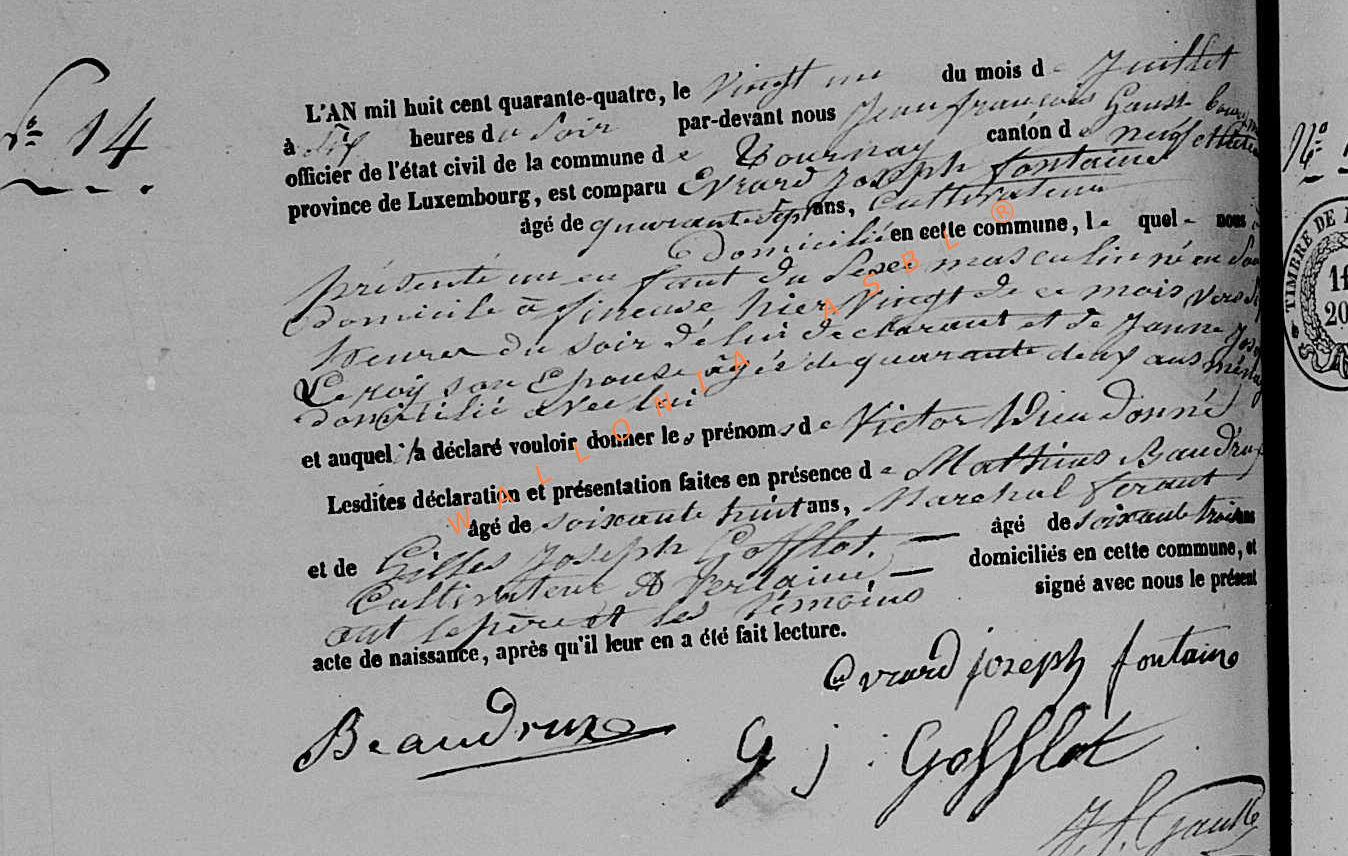 Nº 14
L'AN mil huit cent quarante-quatre, le vingt un du mois de Juillet
à dix heures du soir par-devant nous Jean françois Gausse
officier de l'état civil de la commune de Tournay canton de neufchateau
province de Luxembourg, est comparu Evrard Joseph fontaine
âgé de quarante sept ans, Cultivateur
Domicilié en cette commune, lequel nous
présenté un enfant du Sexe masculin né en Son
domicile à fineuse hier vingt de ce mois vers
heures du soir de lui déclarant et de Janne
Leroy son Epouse âgée de quarante deux ans
domicilié avec lui
et auquel il a déclaré vouloir donner les prénoms de Victor Dieudonné
Lesdites déclaration et présentation faites en présence de Mathias Baudrux
âgé de soixante huit ans, Marchal ferant
et de Gilles Joseph Gofflot. âgé de soixante trois ans
Cultivateur A Verlaine, domiciliés en cette commune, et
ont le père et les témoins signé avec nous le présent
acte de naissance, après qu'il leur en a été fait lecture.
Evrard joseph fontaine
Beaudrux
G j : Gofflot
J. f. Gausse
WALLONIA ASBL ®
Nº
TIMBRE DE